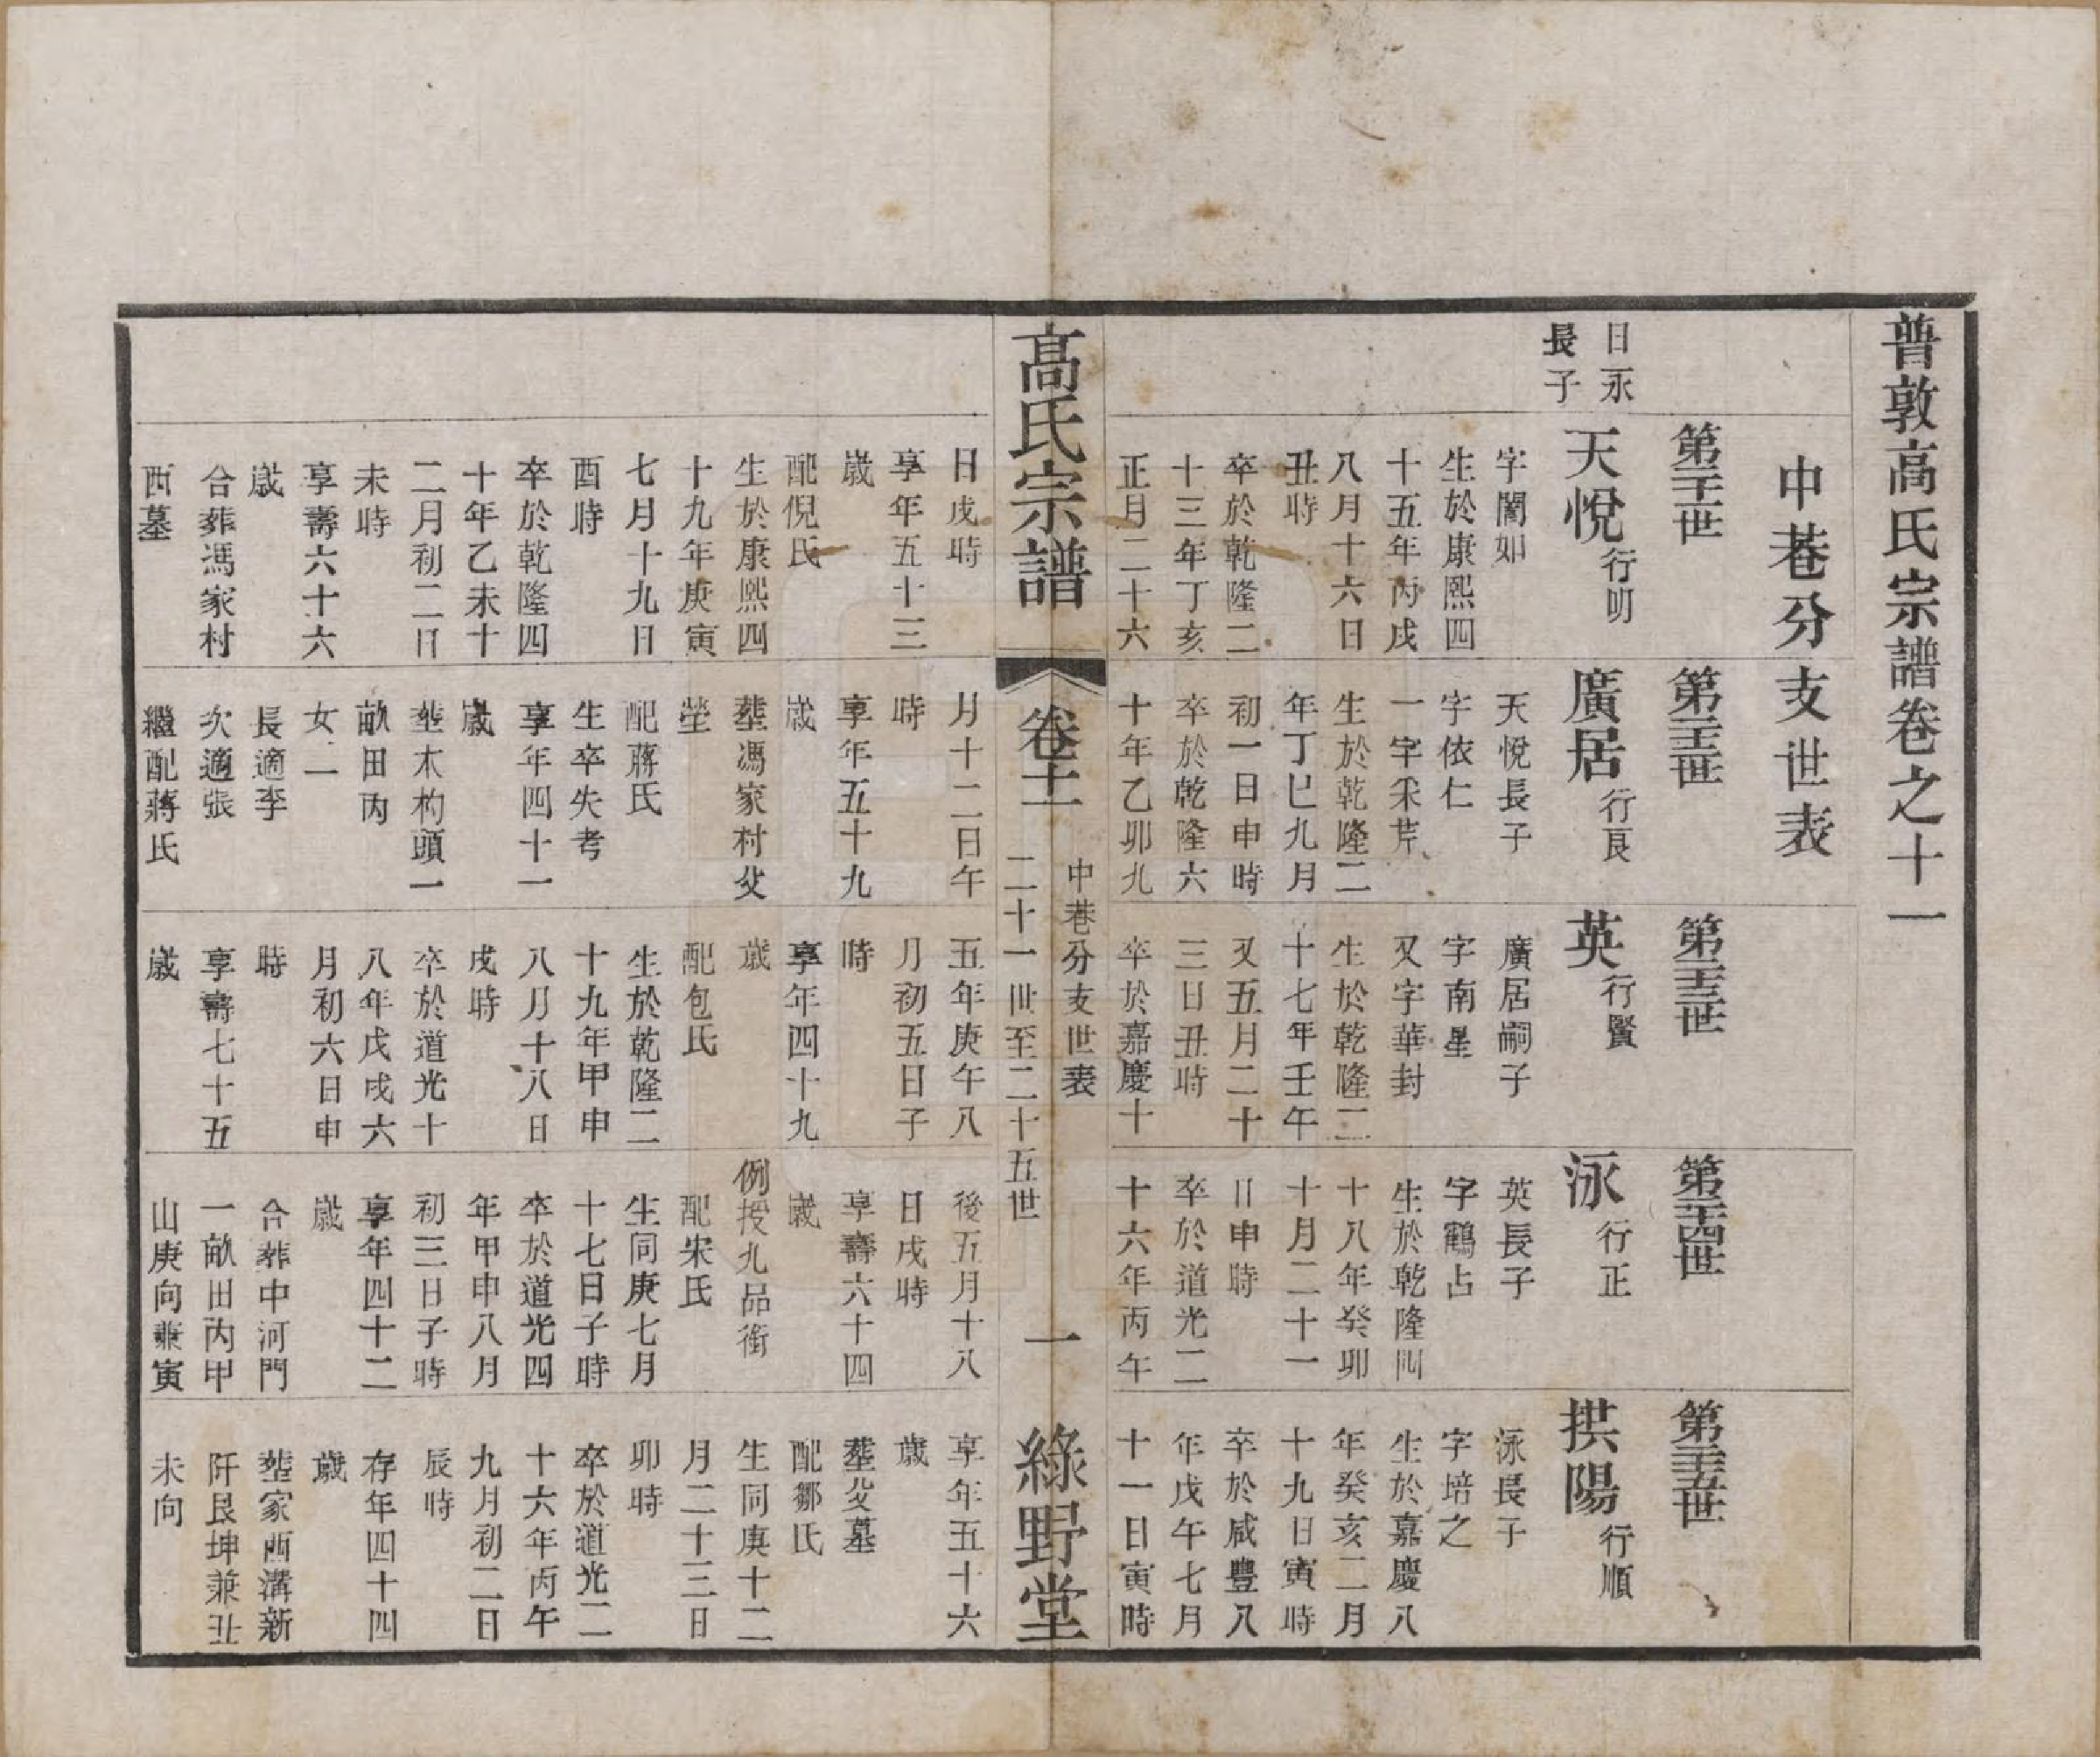 普敦高氏宗譜卷之十一
中巷分支世表
日永
長子
第二十一世
天悅行明
字闇如
生於康熙四
十五年丙戌
八月十六日
丑時
卒於乾隆二
十三年丁亥
正月二十六
日戌時
享年五十三
歲
配倪氏
生於康熙四
十九年庚寅
七月十九日
酉時
卒於乾隆四
十年乙未十
二月初二日
未時
享壽六十六
歲
合葬馮家村
西墓
第二十二世
廣居行良
天悅長子
字依仁
一字采芹
生於乾隆二
年丁巳九月
初一日申時
卒於乾隆六
十年乙卯九
月十二日午
時
享年五十九
歲
塟馮家村父
塋
配蔣氏
生卒失考
享年四十一
歲
塟木杓頭一
畝田內
女二
長適李
次適張
繼配蔣氏
第二十三世
英行賢
廣居嗣子
字南星
又字華封
生於乾隆二
十七年壬午
又五月二十
三日丑時
卒於嘉慶十
五年庚午八
月初五日子
時
享年四十九
歲
配包氏
生於乾隆二
十九年甲申
八月十八日
戌時
卒於道光十
八年戊戌六
月初六日申
時
享壽七十五
歲
第二十四世
泳行正
英長子
字鶴占
生於乾隆四
十八年癸卯
十月二十一
日申時
卒於道光二
十六年丙午
後五月十八
日戌時
享壽六十四
歲
例授九品銜
配宋氏
生同庚七月
十七日子時
卒於道光四
年甲申八月
初三日子時
享年四十二
歲
合葬中河門
一畝田內甲
山庚向兼寅
第二十五世
拱陽行順
泳長子
字培之
生於嘉慶八
年癸亥二月
十九日寅時
卒於咸豐八
年戊午七月
十一日寅時
享年五十六
歲
塟父墓
配鄒氏
生同庚十二
月二十三日
卯時
卒於道光二
十六年丙午
九月初二日
辰時
存年四十四
歲
塟家西溝新
阡艮坤兼丑
未向
高氏宗譜
卷十一
中巷分支世表
二十一世至二十五世
一
綠野堂